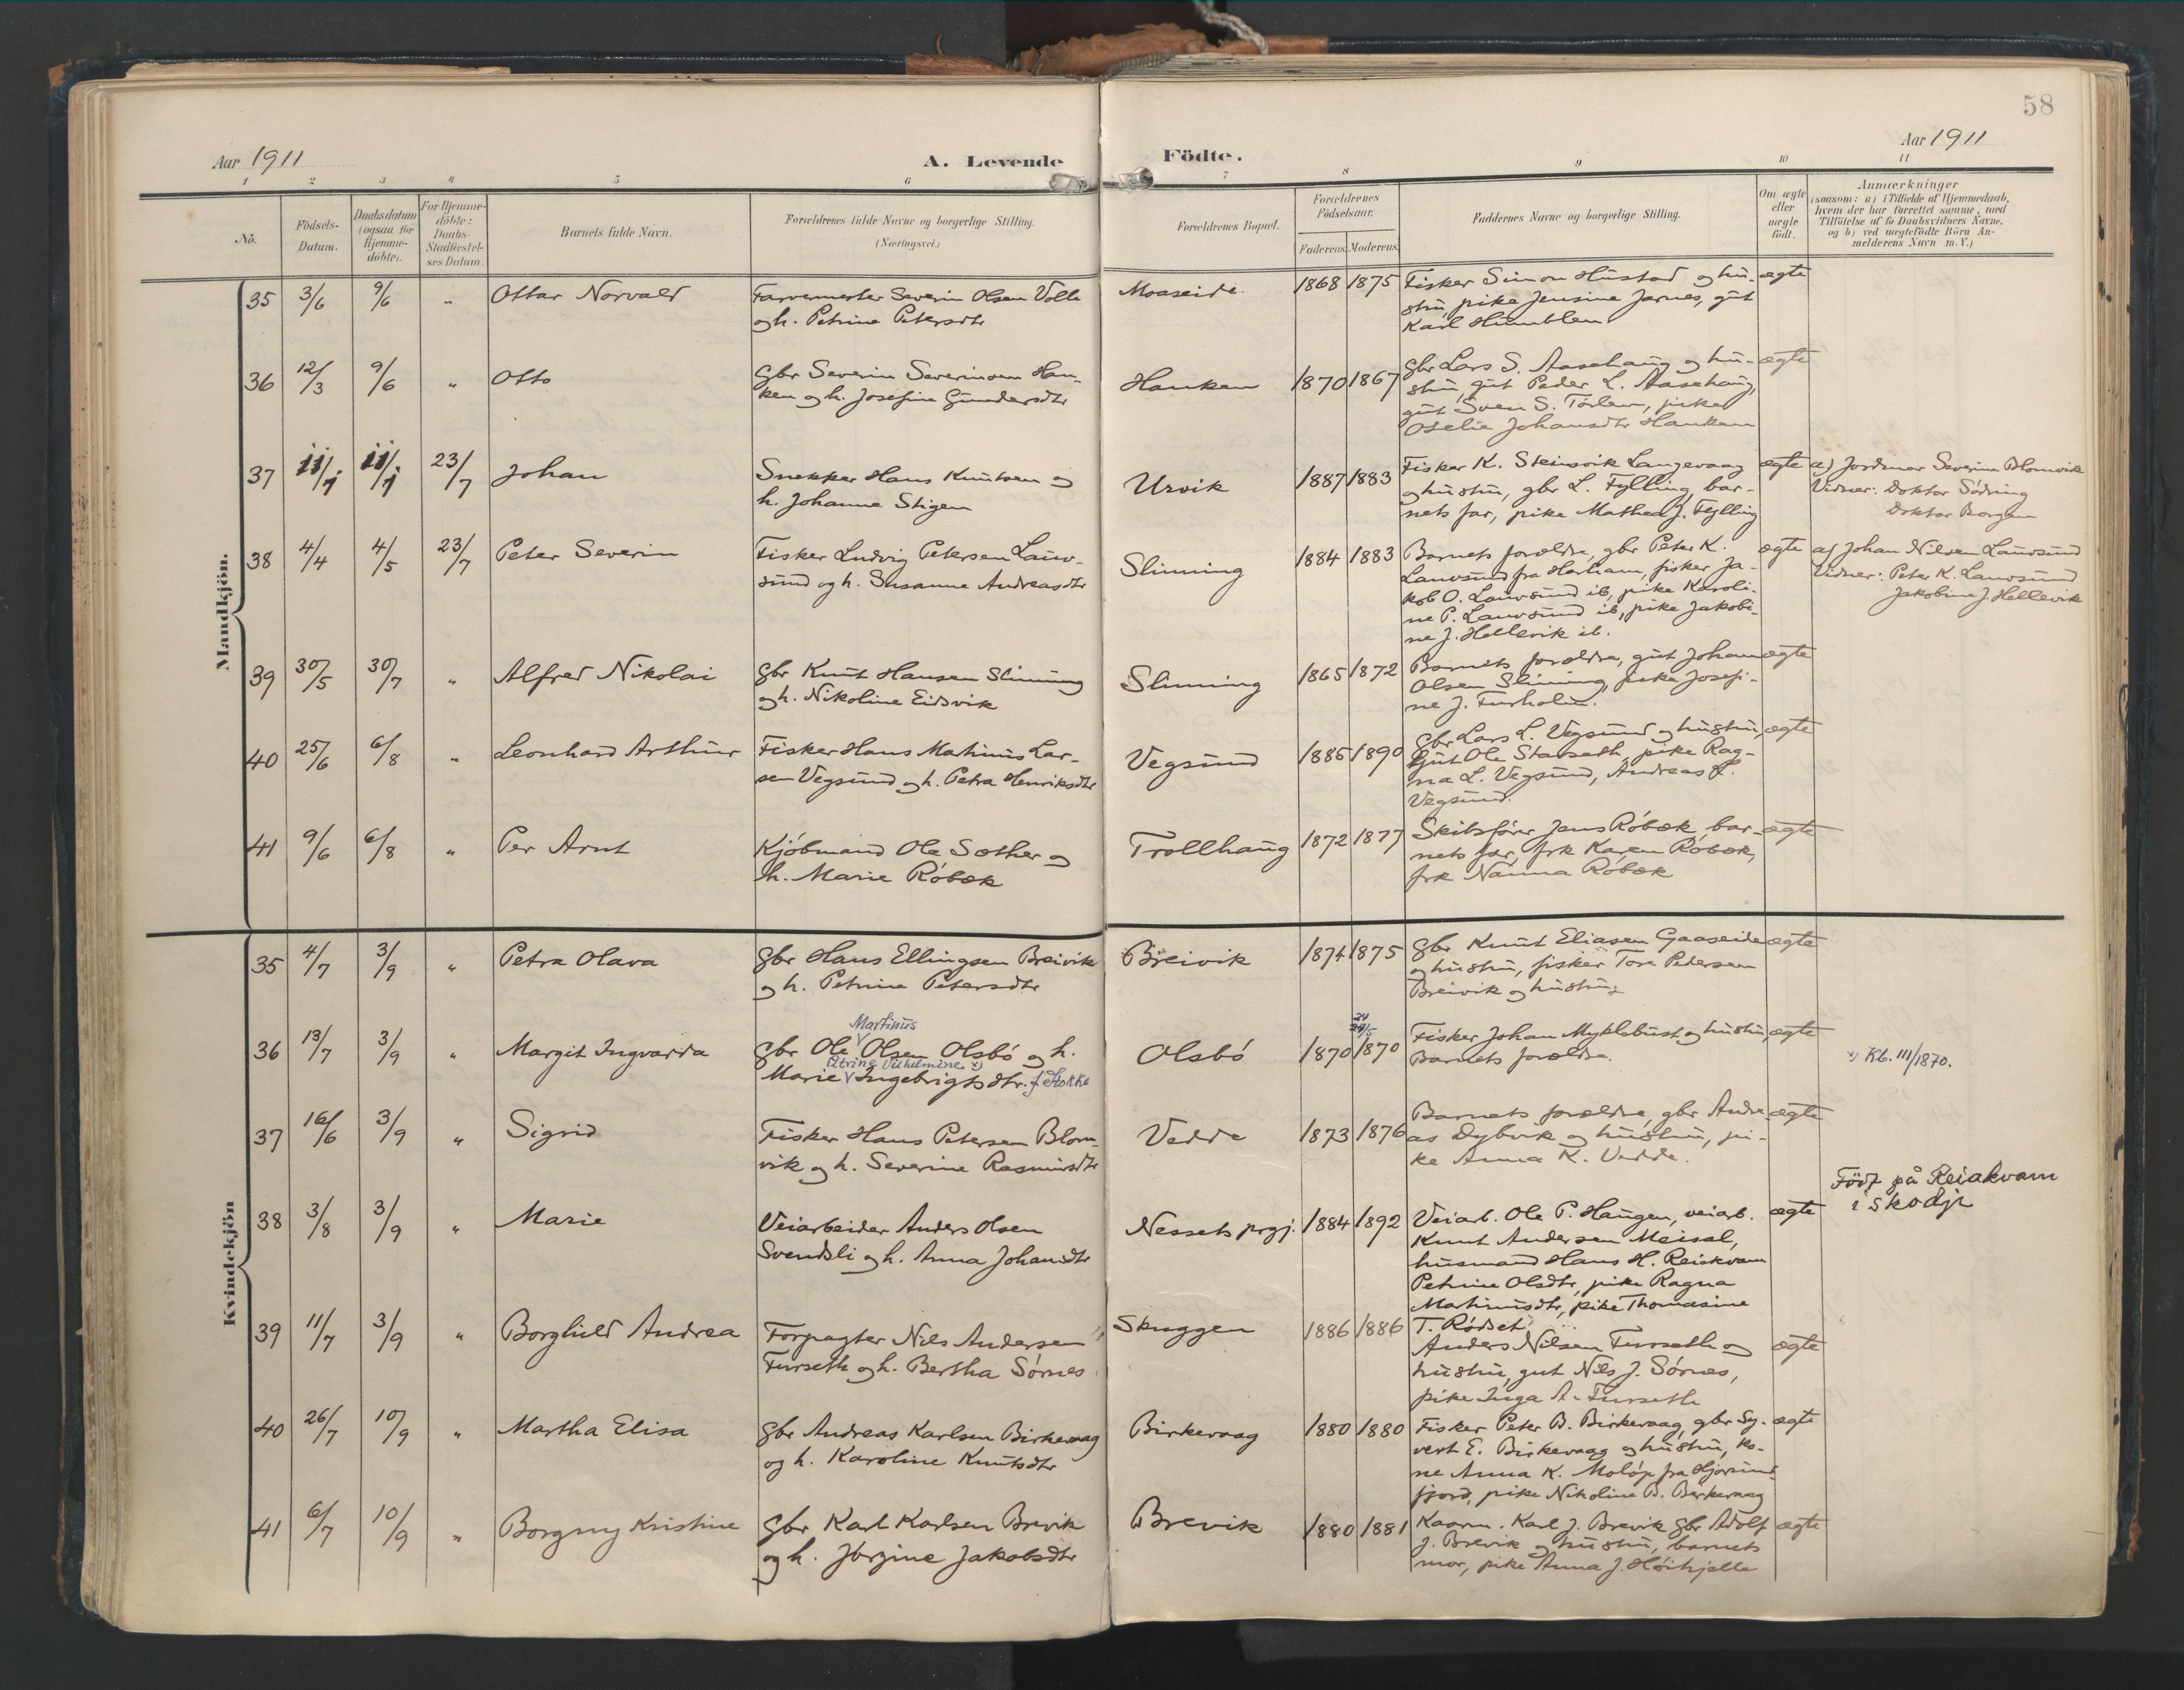 58
Aar 1911
A. Levende
Födte.
Aar 1911
1 2 3 4 5 6 7 8 9 10 11
No.
Födsels-
Datum.
Daabsdatum
(ogsaa for
Hjemme-
döbte).
For Hjemme-
döbte:
Daabs-
Stadfæstel-
ses Datum.
Barnets fulde Navn.
Forældrenes fulde Navne og borgerlige Stilling.
(Næringsvei.)
Forældrenes Bopæl.
Forældrenes
Födselsaar.
Faderens. Moderens.
Faddernes Navne og borgerlige Stilling.
Om ægte
eller
uægte
födt.
Anmærkninger
(saasom: a) i Tilfælde af Hjemmedaab,
hvem der har forrettet samme, med
Tilföielse af to Daabsvidners Navne,
og b) ved uægtefödte Börn An-
melderens Navn m. V.)
Mandkjön.
35 3/6 9/6 " Ottar Norvald
Farvermester Severin Olsen Volle
og h. Petrine Petersdtr
Moaseide 1868 1875
Fisker Simon Hustad og hu-
stru, pike Jensine Jarnes, gut
Karl Humblen
ægte
36 12/3 9/6 " Otto
Gbr Severin Severinsen Han-
ken og h. Josefine Gundersdtr
Hanken 1870 1867
Gbr Lars S. Aasehaug og hu-
stru, gut Peder L. Aasehaug,
gut Sven S. Torlen, pike
Oselie Johansdtr Hanken
ægte
37 11/7 11/7 23/7 Johan
Snekker Hans Knutsen og
h. Johanne Stigen
Urvik 1887 1883
Fisker K. Steinsvik Langevaag
og hustru, gbr L. Fylling, bar-
nets far, pike Mathea J. Fylling
ægte
a) Jordmor Severine Blomvik
Vidner: Doktor Södring
Doktor Borgen
38 4/4 4/5 23/7 Peter Severin
Fisker Ludvig Petersen Lauv-
sund og h. Susanne Andreasdtr
Slinning 1884 1883
Barnets forældre, gbr Peter K.
Lauvsund fra Harham, fisker Ja-
kob O. Lauvsund ib, pike Karoli-
ne P. Lauvsund ib, pike Jakobi-
ne J. Hellevik ib.
ægte
a) Johan Nilsen Lauvsund
Vidner: Peter K. Lauvsund
Jakobine J Hellevik
39 30/5 30/7 " Alfred Nikolai
Gbr Knut Hansen Slinning
og h. Nikoline Eidsvik
Slinning 1865 1872
Barnets forældre, gut Johan
Olsen Slinning, pike Josefi-
ne J. Furholm.
ægte
40 25/6 6/8 " Leonhard Arthur
Fisker Hans Matinus Lar-
sen Vegsund og h. Petra Henriksdtr
Vegsund 1885 1890
Gbr Lars L. Vegsund og hustru
Gut Ole Stavseth, pike Rag-
na L. Vegsund, Andreas L.
Vegsund.
ægte
41 9/6 6/8 " Per Arnt
Kjöbmand Ole Sæther og
h. Marie Röbæk
Trollhaug 1872 1877
Skibsförer Jens Röbæk, bar-
nets far, frk Karen Röbæk,
frk Nanna Röbæk
ægte
Kvindekjön
35 4/7 3/9 " Petra Olava
Gbr Hans Ellingsen Breivik
og h. Petrine Petersdtr
Breivik 1874 1875
Gbr Knut Eliasen Gaaseide
og hustru, fisker Tore Pedersen
Breivik og hustru
ægte
36 13/7 3/9 " Margit Ingvarda
Martinus
Gbr Ole Olsen Olsbö og h.
Petrine Vilhelmine x)
Marie Ingebrigtsdtr. f. Stokke
Olsbö 1870 1870
Fisker Johan Myklebust og hustru,
Barnets forældre.
ægte
x) Kb. III/1870.
37 16/6 3/9 " Sigrid
Fisker Hans Petersen Blom-
vik og h. Severine Rasmusdtr
Vedde 1873 1876
Barnets forældre, gbr Andre-
as Dybvik og hustru, pi-
ke Anna K. Vedde.
ægte
38 3/8 3/9 " Marie
Veiarbeider Anders Olsen
Svendsli og h. Anna Johansdtr
Nessets prgj. 1884 1892
Veiarb. Ole P. Haugen, veiarb.
Knut Andersen Meisal,
husmand Hans H. Reiakvam
Petrine Olsdtr, pike Ragna
Martinusdtr, pike Thomasine
T. Rödset
ægte
Född på Reiakvam
i Skodje
39 11/7 3/9 " Borghild Andrea
Forpagter Nils Andersen
Furseth og h. Bertha Sörnes
Skuggen 1886 1886
Anders Nilsen Furseth og
hustru, gut Nils J. Sörnes,
pike Inga A. Furseth
ægte
40 26/7 10/9 " Martha Elisa
Gbr Andreas Karlsen Birkevaag
og h. Karoline Knutsdtr
Birkevaag 1880 1880
Fisker Peter B. Birkevaag, gbr Sy-
vert E. Birkevaag og hustru, ko-
ne Anna K. Molöp fra Hjörund-
fjord, pike Nikoline B. Birkevaag
ægte
41 6/7 10/9 " Borgny Kristine
Gbr Karl Karlsen Brevik
og h. Jörgine Jakobsdtr
Brevik 1880 1881
Kaarm. Karl J. Brevik gbr Adolf
J. Brevik og hustru, barnets
mor, pike Anna J. Höihjelle
ægte